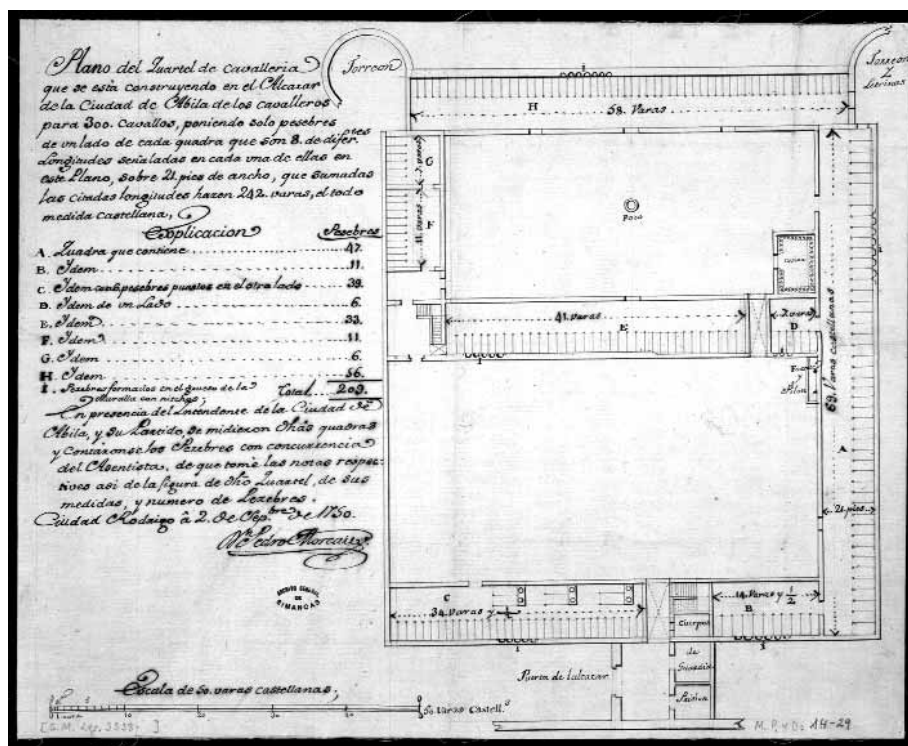 Plano del Quartel de Cavalleria
que se está construyendo en el Alcazar
de la Ciudad de Abila de los cavalleros
para 300. Cavallos, poniendo solo pesebres
de un lado de cada quadra que son 8. de difer.tes
Longitudes señaladas en cada vna de ellas en
este Plano, sobre 21. pies de ancho, que sumadas
las citadas longitudes hazen 242. varas, el todo
medida castellana,
Explicacion Pesebres
A. Quadra que contiene 47.
B. Idem 11.
C. Idem pesebres puestos en el otro lado 39.
D. Idem de vn Lado 6.
E. Idem 33.
F. Idem 11.
G. Idem 6.
H. Idem 56.
Total 209.
I. Pesebres formados en el grueso de la
Muralla con nichos;
En presencia del Intendente de la Ciudad de
Abila, y su Partido, se midieron dhas quadras
y contaronse los Pesebres con concurrencia
del Asentista, de que tomè las notas respec-
tives asi de la figura de dho Quartel, de sus
medidas, y numero de Pesebres.
Ciudad Rodrigo â 2. de Sep.bre de 1750.
Pedro Moreau
ARCHIVO GENERAL
DE
SIMANCAS
Escala de 50. varas castellanas;
10 20 30 40
50. varas Castell.s
Torreon
Torreon
Y
Letrinas
I
H
58. Varas
G
F
11. varas
Pozo
41. varas
E
7. varas
D
Fuente
y
Pilon
69. Varas castellanas
A
21. pies
C
34. varas y
14. Varas y 1/2
B
I
I
Cuerpo
de
Guardia
Puerta del alcazar
M. P. y D. XIII-29